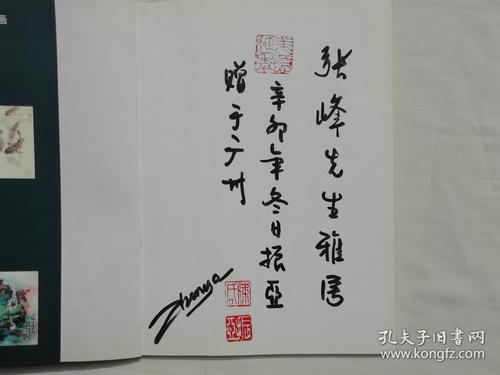 张峰先生雅属
辛卯年冬日振亚
赠于广州
Zhenya
画
孔夫子旧书网
www.kongfz.com